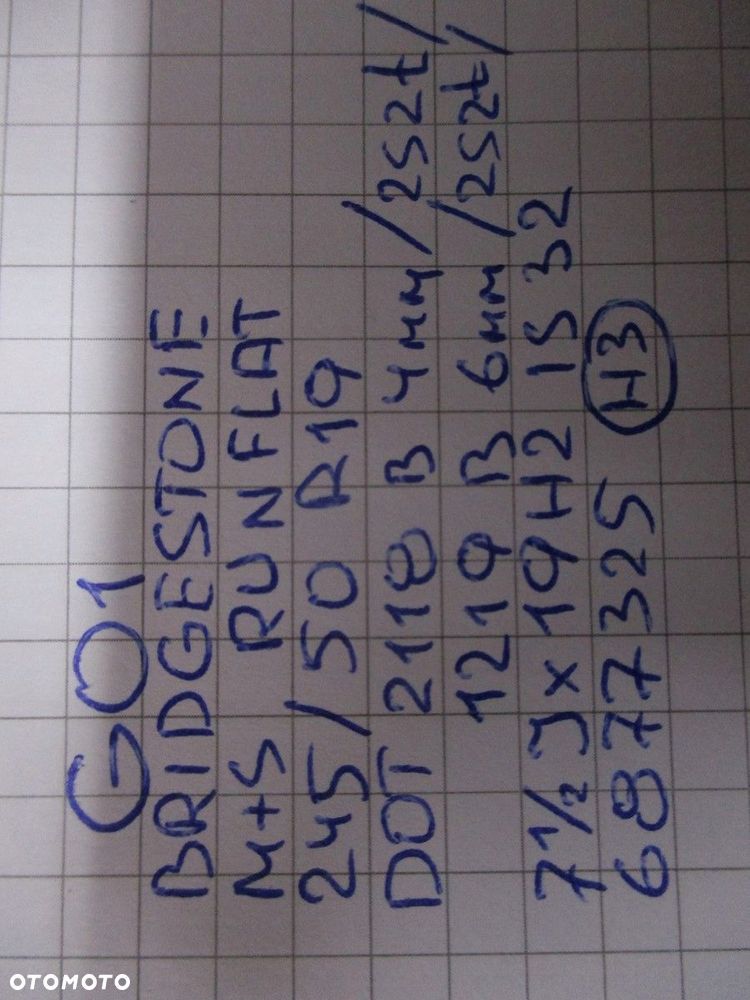 G01
BRIDGESTONE
M+S RUNFLAT
245/50 R19
DOT 2118 B 4mm /2szt/
1219 B 6mm /2szt/
7 1/2 J x 19 H2 IS 32
6877325 H3
OTOMOTO